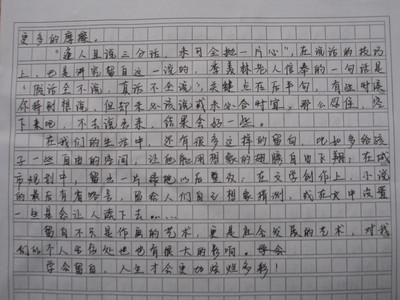 更多的摩擦。
"逢人且说三分话，未可全抛一片心"，在说话的技巧
上，也是讲究留白这一说的，季羡林老人信奉的一句话是
"假话全不说，真话不全说"，关键点在后半句，有些时候
你特别想说，但却未必该说或未必合时宜，那么停住，空
下来吧，不去说出来，结果会好一些。
在我们的生活中，还有很多这样的留白，比如多给孩
子一些自由的空间，让他能用想象的翅膀自由飞翔；在城
市规划中，留出一片绿地以后整改；在文学创作上，小说
的最后有省略号，留给人们自己想象猜测，我在文中设置
一些悬念让人读下去……
留白不只是作画的艺术，更是社会发展的艺术，对我
们的个人为人处也有很大的影响。
学会留白，人生才会更加炫烂多彩！